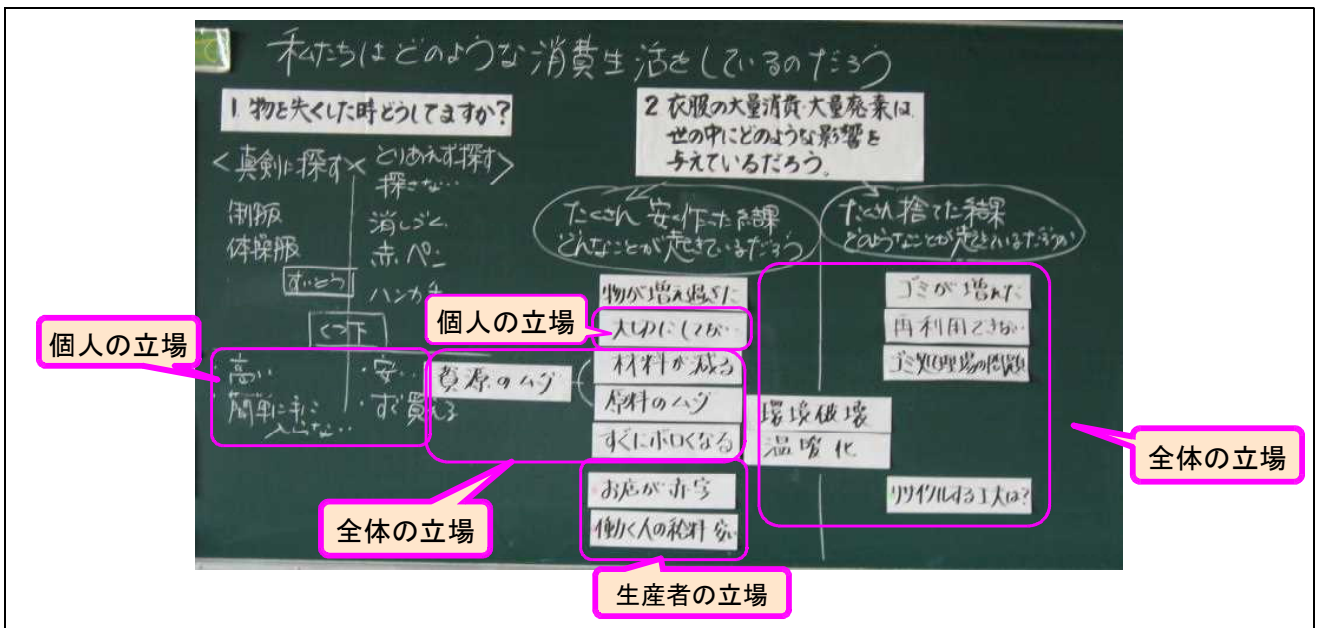 私たちはどのような消費生活をしているのだろう
1. 物を失くした時どうしてますか?
<真剣に探す
とりあえず探す>
探さない
制服
体操服
消しゴム
赤ペン
すいとう
ハンカチ
くつ下
・高い
・簡単に手に
入らない
・安い
・すぐ買える
2 衣服の大量消費・大量廃棄は
世の中にどのような影響を
与えているだろう。
たくさん安く作った結果
どんなことが起きているだろう
たくさん捨てた結果
どのようなことが起きているだろうか
物が増え過ぎた
大切にしてない
材料が減る
資源のムダ
原料のムダ
すぐにボロくなる
お店が赤字
働く人の給料安い
環境破壊
温暖化
ゴミが増えた
再利用できない
ゴミ処理場の問題
リサイクルする工夫は?
個人の立場
個人の立場
全体の立場
全体の立場
生産者の立場